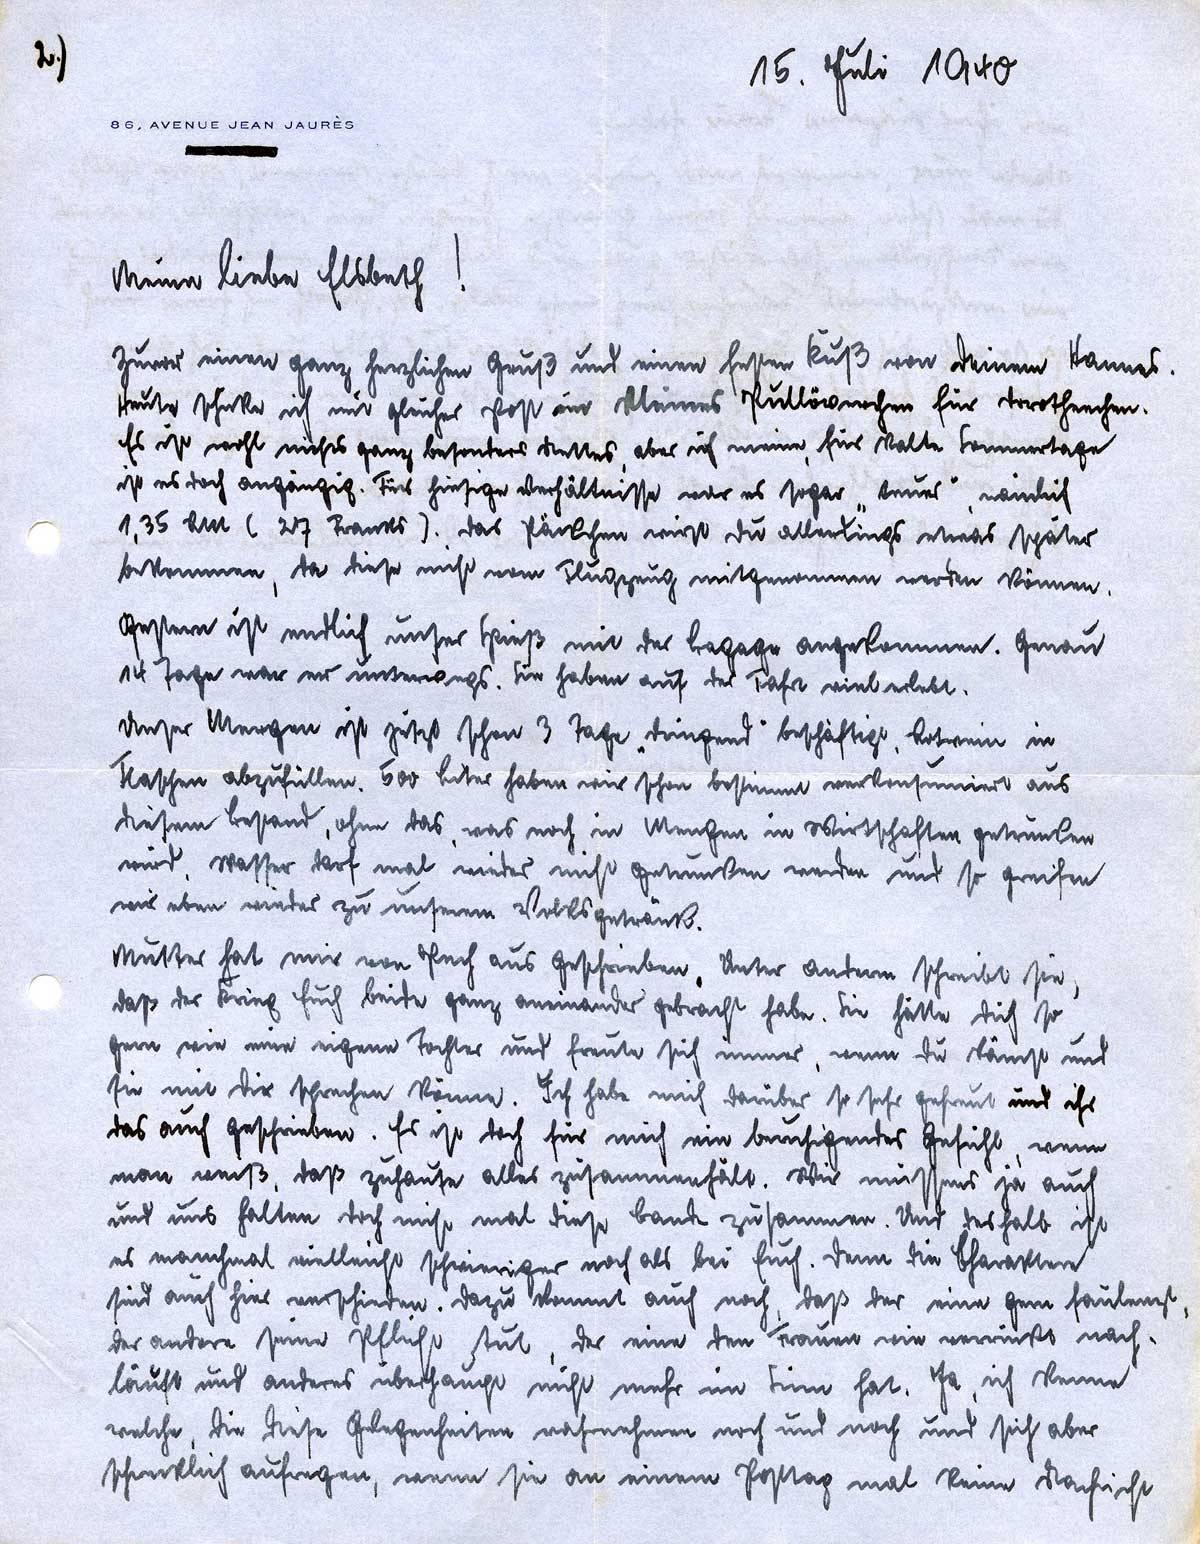 2.)
15. Juli 1940
86, AVENUE JEAN JAURÈS
Meine liebe Elsbeth!
Zuvor einen ganz herzlichen Gruß und einen festen Kuß von Deinem Hannes.
Heute schicke ich mit gleicher Post ein kleines Pullöverchen für Dorotheechen.
Es ist wohl nichts ganz besonders Nettes, aber ich meine, für kalte Sommertage
ist es doch angängig. Für hiesige Verhältnisse war es sogar „teuer", nämlich
1,35 RM (27 Franks). Das Päckchen wirst Du allerdings etwas später
bekommen, da diese nicht vom Flugzeug mitgenommen werden können.
Gestern ist endlich unser Spieß mit der Bagage angekommen. Genau
14 Tage war er unterwegs. Sie haben auf der Fahrt viel erlebt.
Unser Mergen ist jetzt schon 3 Tage „dringend" beschäftigt, Rotwein in
Flaschen abzufüllen. 500 Liter haben wir schon bestimmt verkonsumiert aus
diesem Bestand, ohne das, was noch in Mengen in Wirtschaften getrunken
wird. Wasser darf mal wieder nicht getrunken werden und so greifen
wir eben wieder zu unserem Volksgetränk.
Mutter hat mir von Puch aus geschrieben. Unter anderm schreibt sie,
daß der Krieg Euch beide ganz aneinander gebracht habe. Sie hätte Dich so
gern wie eine eigene Tochter und freute sich immer, wenn Du kämst und
sie mit Dir sprechen könne. Ich habe mich darüber so sehr gefreut und ihr
das auch geschrieben. Es ist doch für mich ein beruhigendes Gefühl, wenn
man weiß, daß zuhause alles zusammenhält. Wir müssens ja auch
und uns halten doch nicht mal diese Bande zusammen. Und deshalb ist
es manchmal vielleicht schwieriger noch als bei Euch. Denn die Charaktere
sind auch hier verschieden. Dazu kommt auch noch, daß der eine gern faulenzt,
der andere seine Pflicht tut, der eine den Frauen wie verrückt nach-
läuft und anderes überhaupt nicht mehr im Sinn hat. Ja, ich kenne
welche, die diese Gelegenheiten wahrnehmen noch und noch und sich aber
schrecklich aufregen, wenn sie an einem Posttag mal keine Nachricht